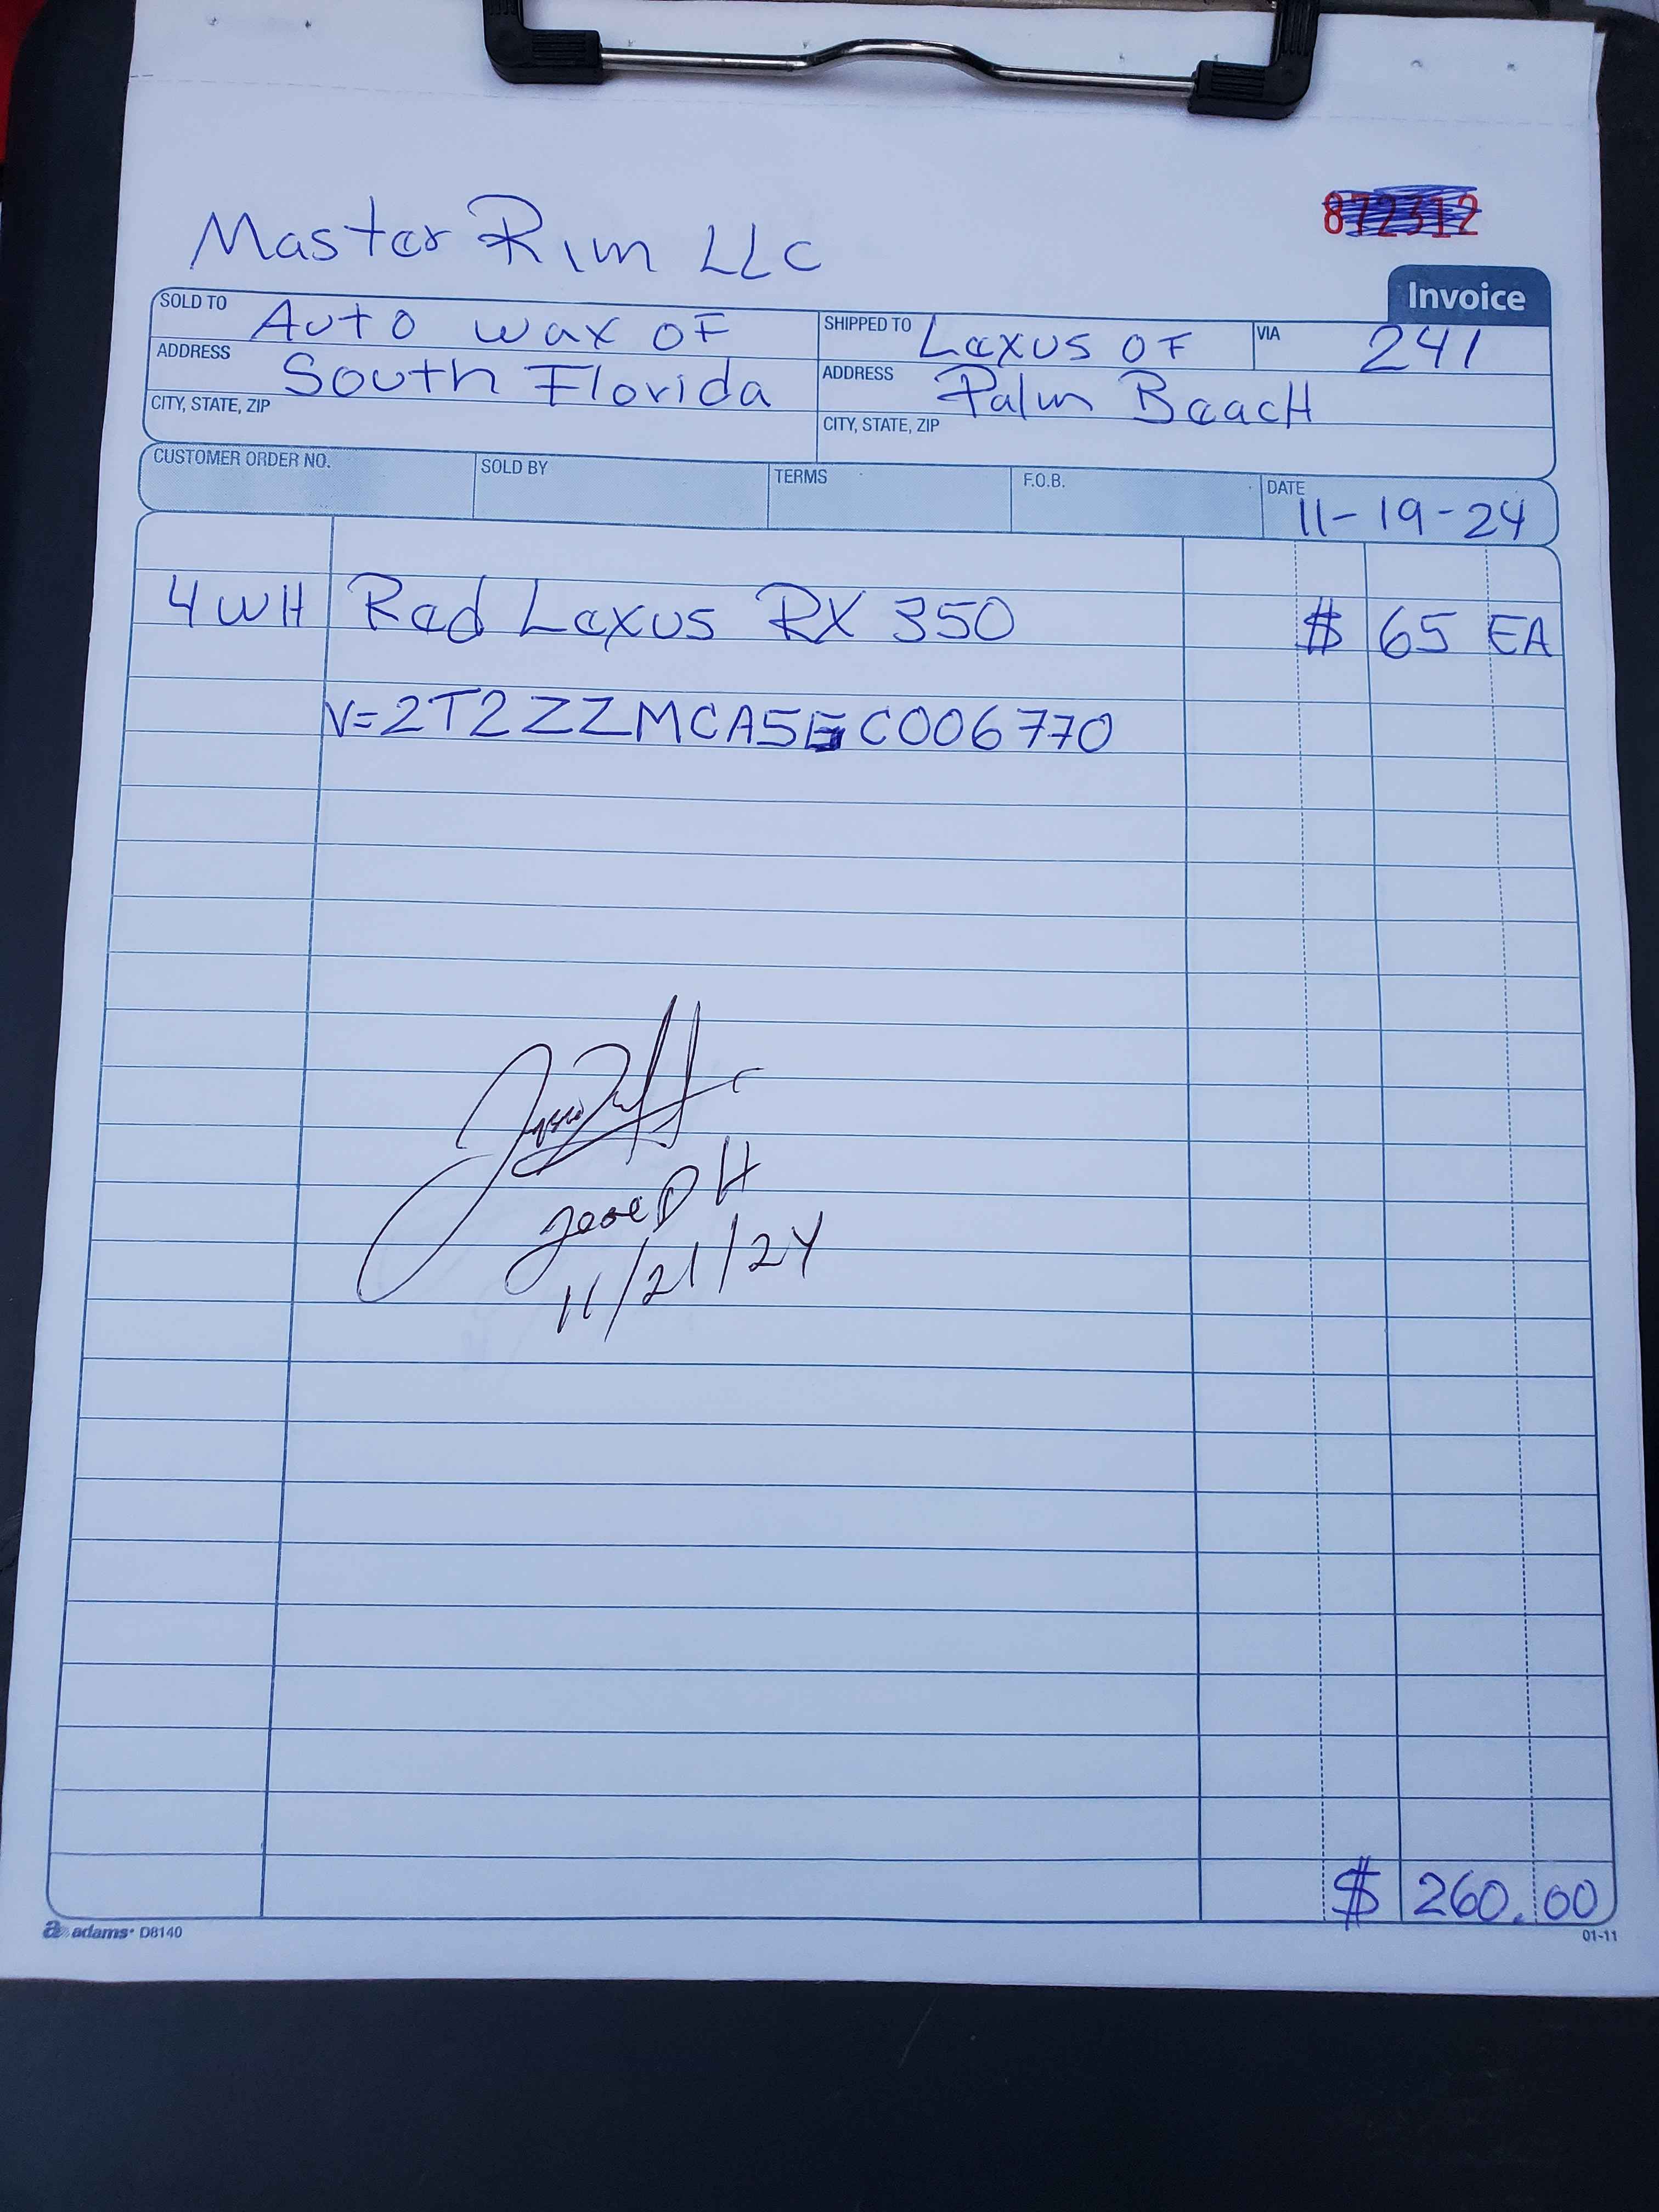 872312
Master Rim LLC
Invoice
SOLD TO Auto wax of
SHIPPED TO Lexus of
VIA 241
ADDRESS South Florida
ADDRESS Palm Beach
CITY, STATE, ZIP
CITY, STATE, ZIP
CUSTOMER ORDER NO. SOLD BY TERMS F.O.B. DATE 11-19-24
4 WH Red Lexus RX 350 $ 65 EA
V=2T2ZZMCA5GC006770
Jose D H
11/21/24
$ 260.00
adams D8140
01-11